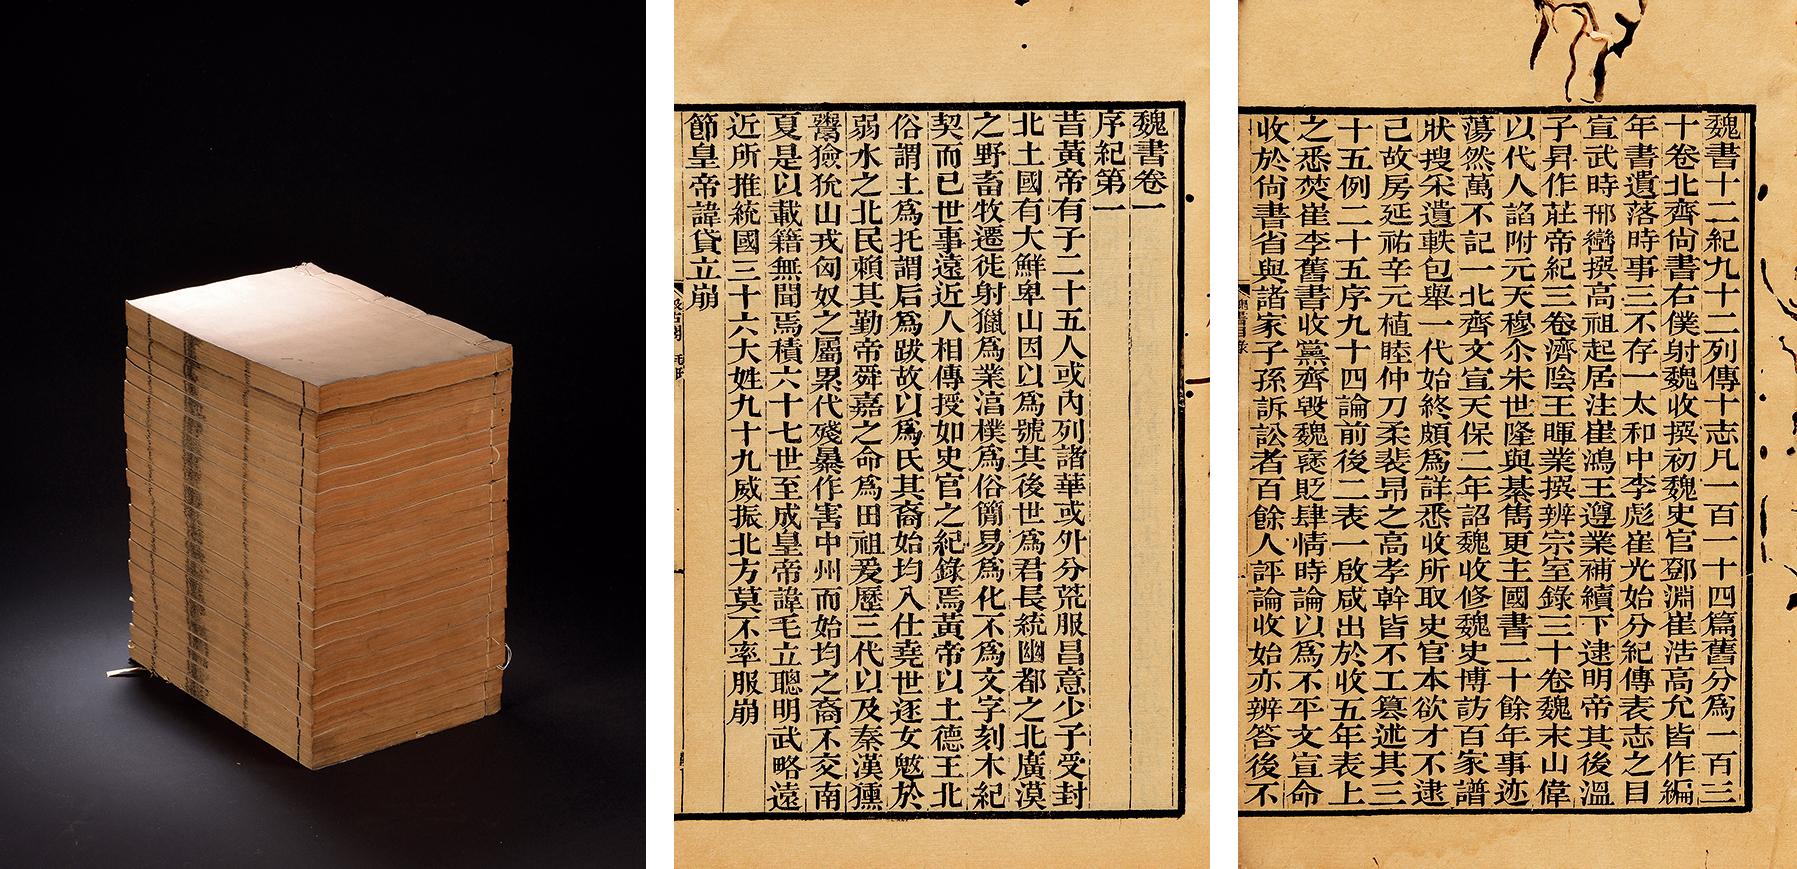 魏書卷一
序紀第一
昔黃帝有子二十五人或內列諸華或外分荒服昌意少子受封
北土國有大鮮卑山因以爲號其後世爲君長統幽都之北廣漠
之野畜牧遷徙射獵爲業淳樸爲俗簡易爲化不爲文字刻木紀
契而已世事遠近人相傳授如史官之紀錄焉黃帝以土德王北
俗謂土爲托謂后爲跋故以爲氏其裔始均入仕堯世逐女魃於
弱水之北民賴其勤帝舜嘉之命爲田祖爰歷三代以及秦漢獯
鬻獫狁山戎匈奴之屬累代殘暴作害中州而始均之裔不交南
夏是以載籍無聞焉積六十七世至成皇帝諱毛立聰明武略遠
近所推統國三十六大姓九十九威振北方莫不率服崩
節皇帝諱貸立崩
魏書十二紀九十二列傳十志凡一百一十四篇舊分爲一百三
十卷北齊尙書右僕射魏收撰初魏史官鄧淵崔浩高允皆作編
年書遺落時事三不存一太和中李彪崔光始分紀傳表志之目
宣武時邢巒撰高祖起居注崔鴻王遵業補續下逮明帝其後溫
子昇作莊帝紀三卷濟陰王暉業撰辨宗室錄三十卷魏末山偉
以代人諂附元天穆尒朱世隆與綦儁更主國書二十餘年事迹
蕩然萬不記一北齊文宣天保二年詔魏收修魏史博訪百家譜
狀搜采遺軼包舉一代始終頗爲詳悉收所取史官本欲才不逮
己故房延祐辛元植睦仲刀柔裴昂之高孝幹皆不工纂述其三
十五例二十五序九十四論前後二表一啟咸出於收五年表上
之悉焚崔李舊書收黨齊毀魏襃貶肆情時論以爲不平文宣命
收於尙書省與諸家子孫訴訟者百餘人評論收始亦辨答後不